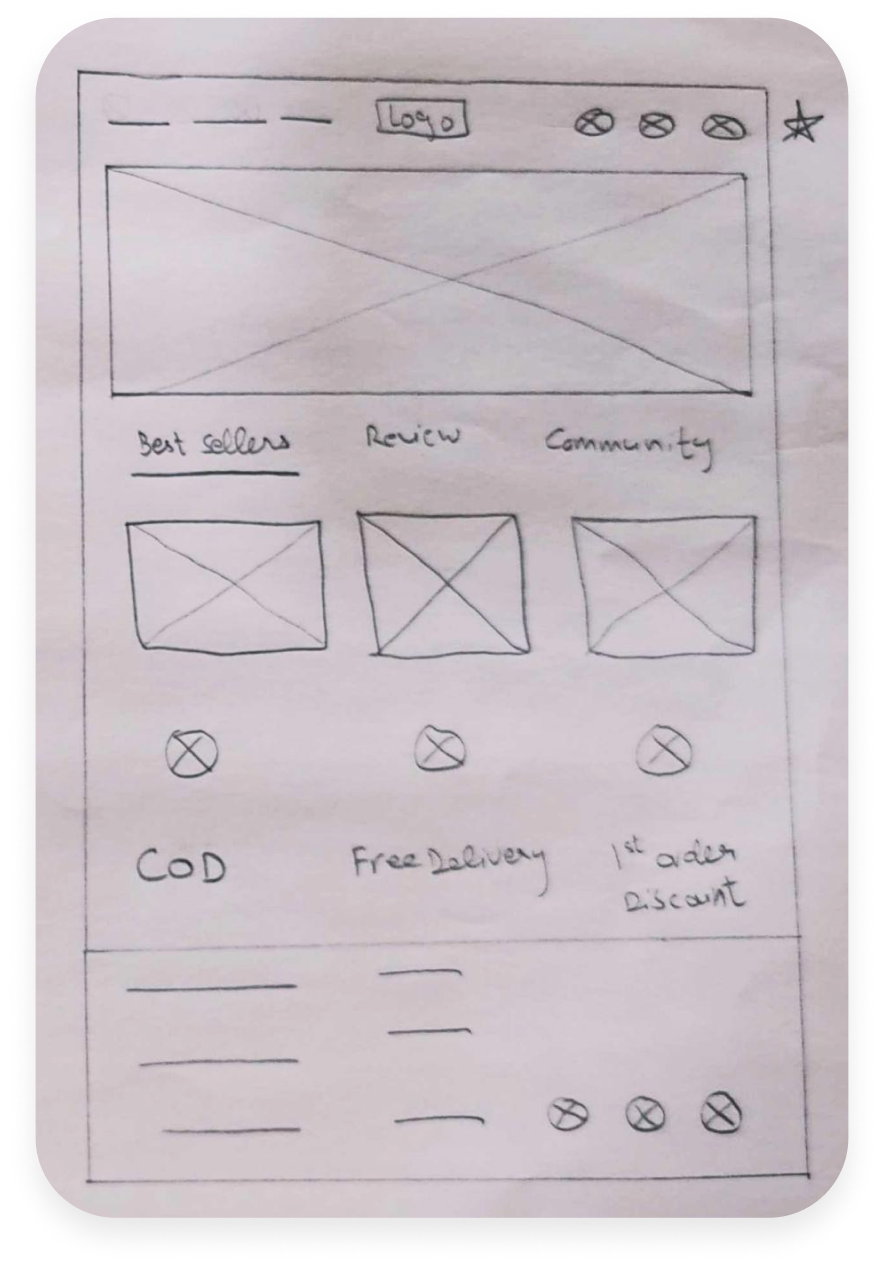 Logo
Best Sellers Review Community
COD Free Delivery 1st order
Discount